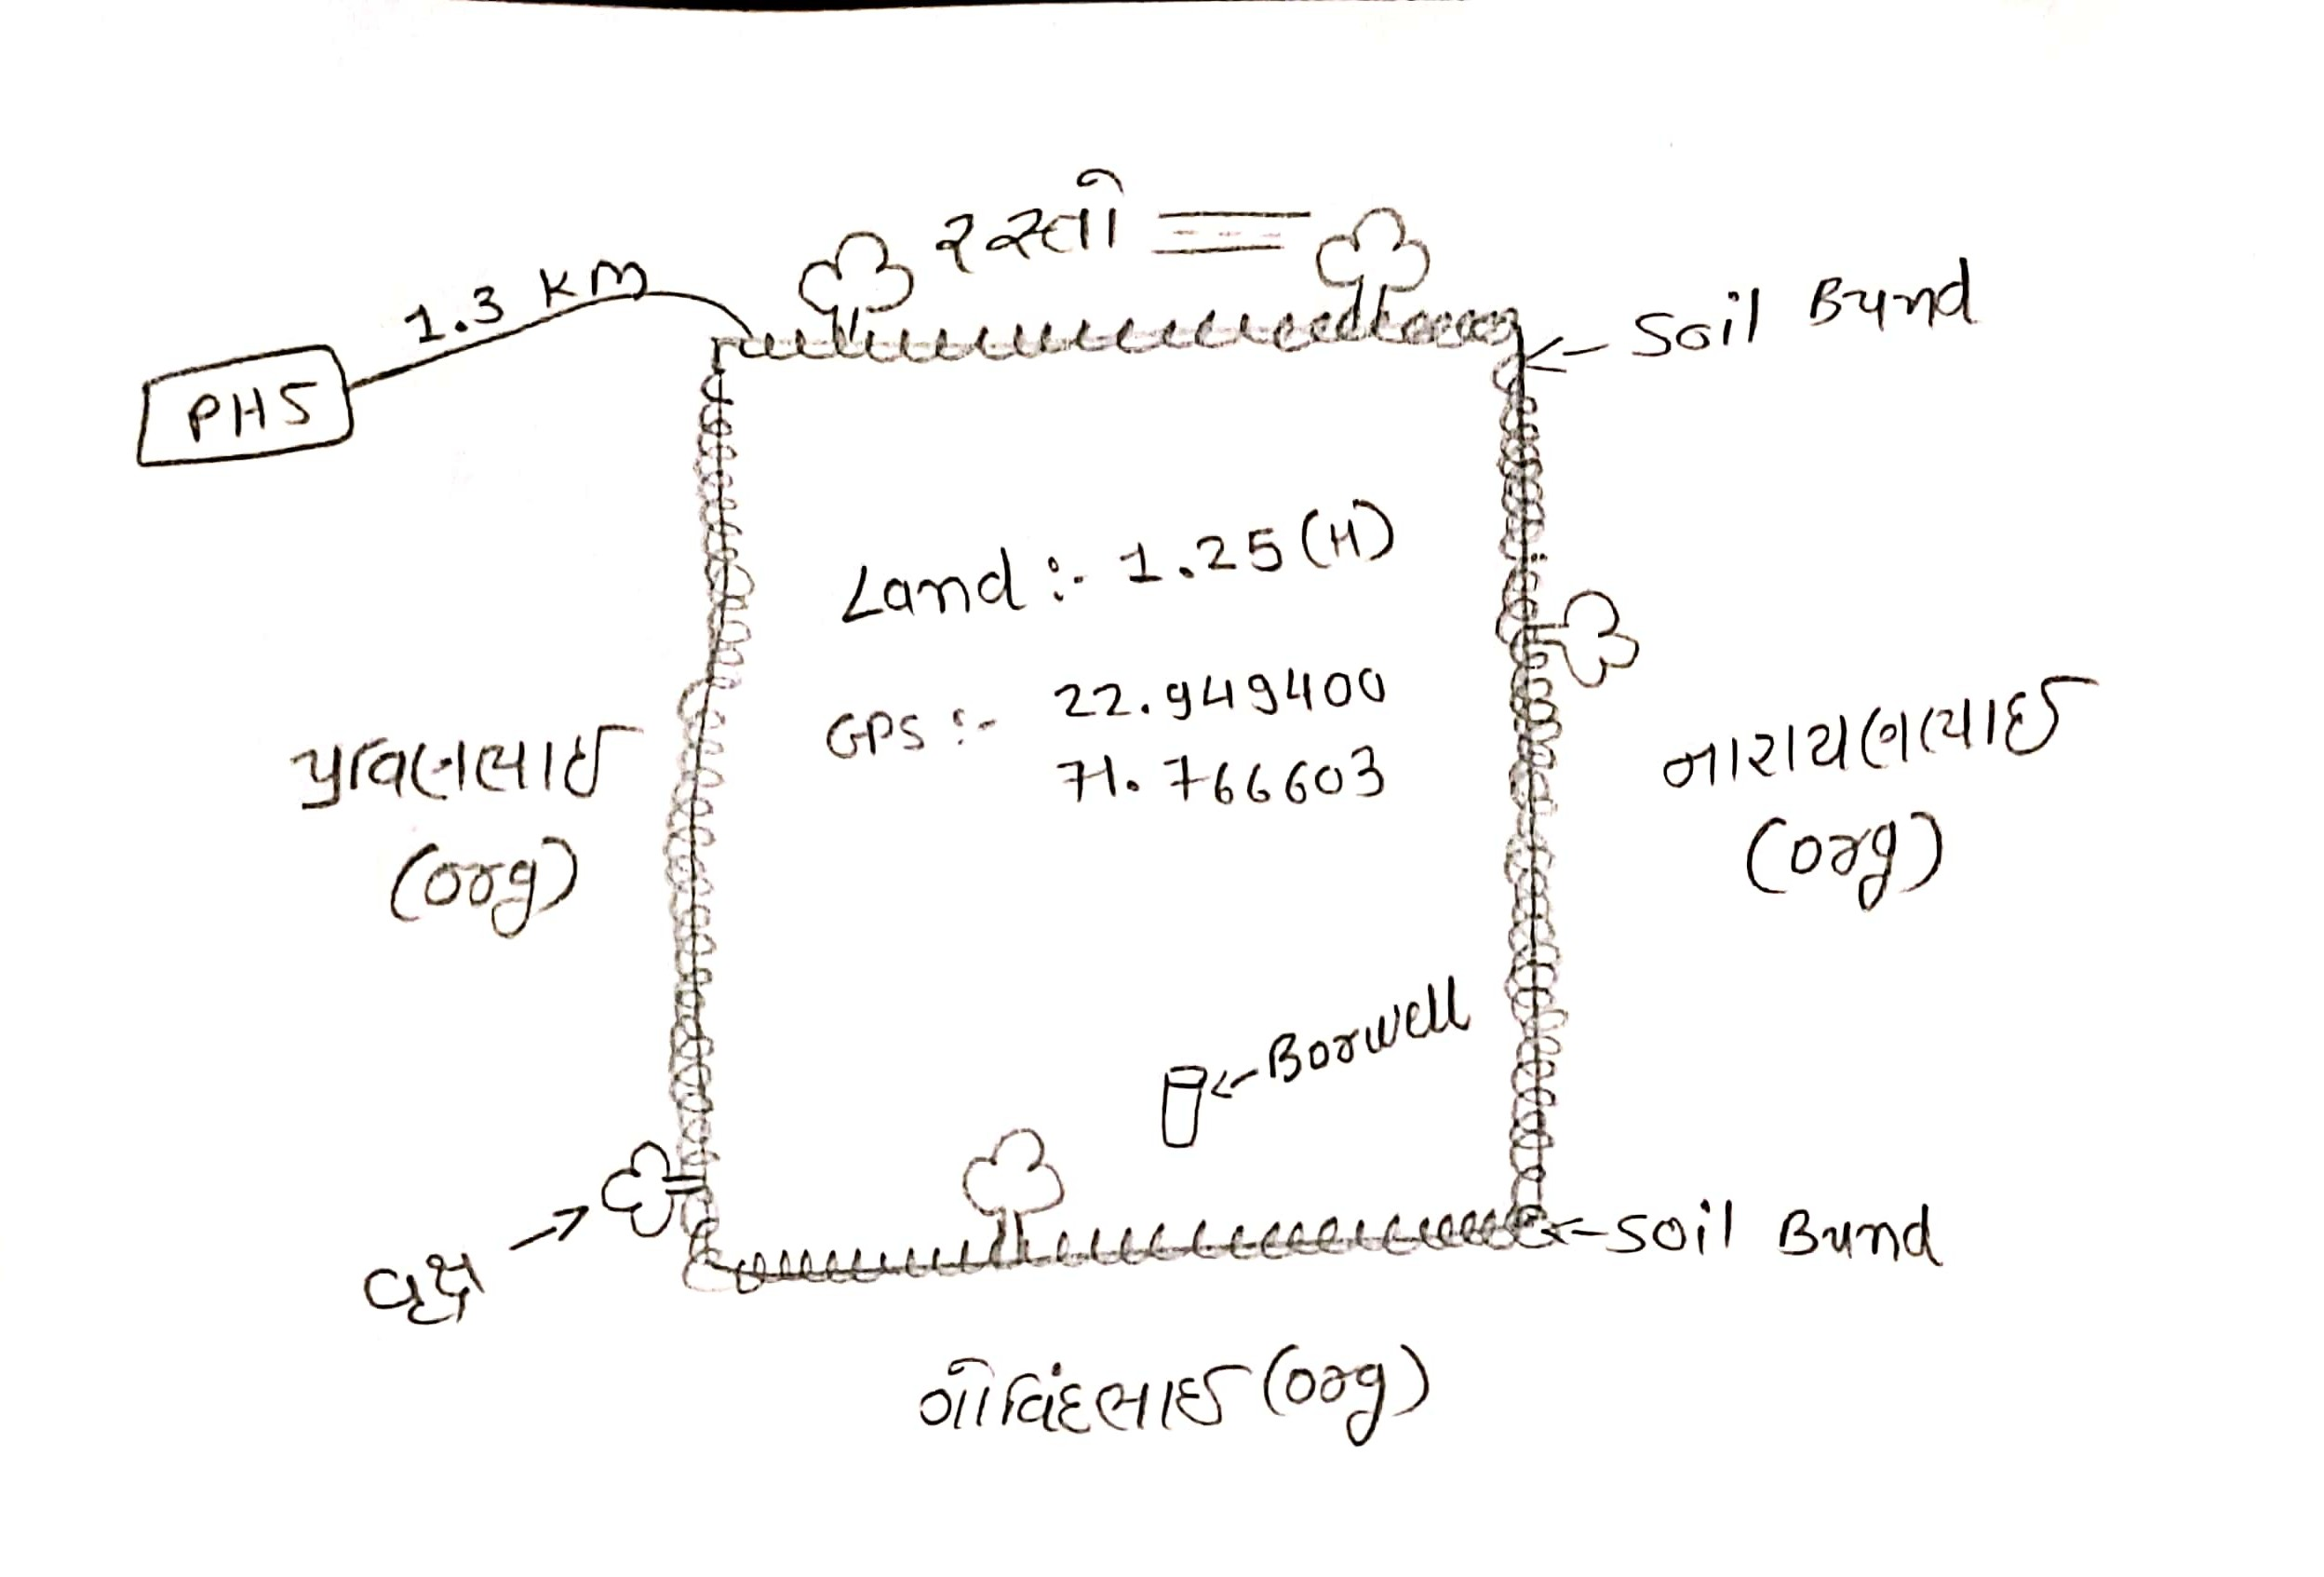 રસ્તો
1.3 KM
Soil Bund
PHS
Land :- 1.25 (H)
GPS :- 22.949400
71.766603
પ્રવિણભાઈ
(org)
નારાયણભાઈ
(org)
Borwell
Soil Bund
વૃક્ષ
ગોવિંદભાઈ (org)